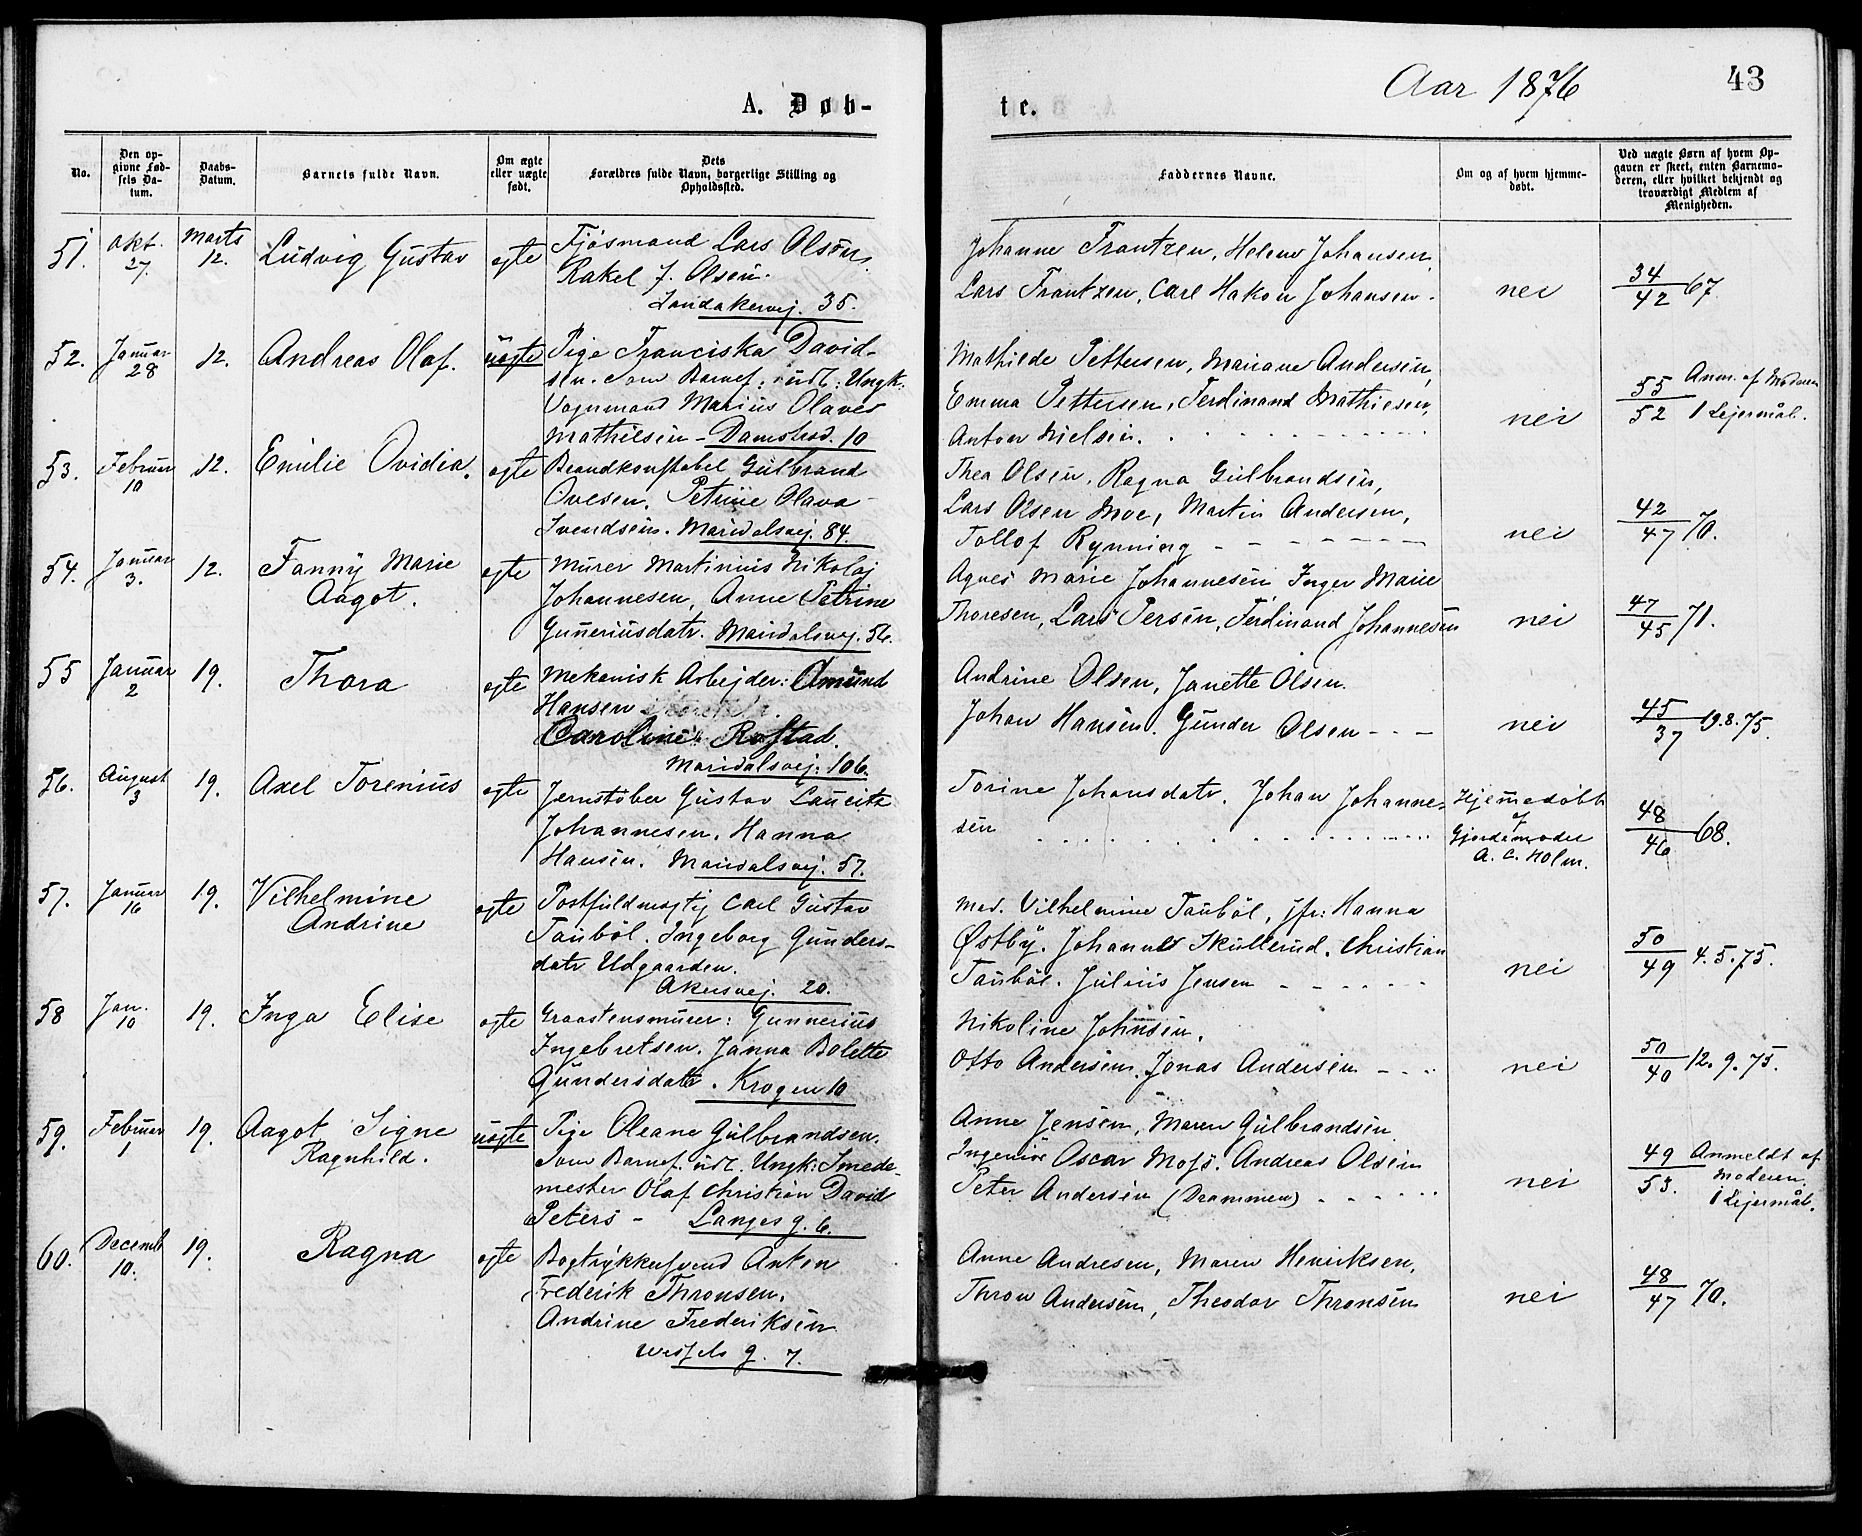 Aar 1876
43
A. Døb-
te.
No.
Den opgivne Fødsels Datum.
Daabs-Datum.
Barnets fulde Navn.
Om ægte eller uægte født.
Dets Forældres fulde Navn, borgerlige Stilling og Opholdssted.
Faddernes Navne.
Om og af hvem hjemmedøbt.
Ved uægte Børn af hvem Opgaven er skeet, enten Barnemoderen, eller hvilket bekjendt og troværdigt Medlem af Menigheden.
51. Okt. 27. Marts 12. Ludvig Gustav ægte
Fjösmand Lars Olsen,
Rakel J. Olsen.
Sandakervej. 35.
Johanne Frantzen, Helene Johansen,
Lars Frantzen, Carl Hakon Johansen.
nei
34/42 67
52. Januar 28 12. Andreas Olaf. uægte
Pige Franciska David-
sen. Som Barnef: udl: Ungk:
Vognmand Marius Olaves
Mathisen - Damstred. 10
Mathilde Pettersen, Mariane Andersen,
Emma Pettersen, Ferdinand Mathiesen,
Anton Nielsen.
nei
55/52 Anm. af Moderen
1 Lejermål.
53. Februar 10 12. Emilie Ovidia. ægte
Brandkonstabel Gulbrand
Ovesen, Petrine Olava
Svendsen. Maridalsvej. 84.
Thea Olsen, Ragna Gulbrandsen,
Lars Olsen Moe, Martin Andersen,
Tollof Rynning
nei
42/47 70.
54. Januar 3. 12. Fanny Marie
Aagot. ægte
Murer Martinius Nikolaj
Johannesen, Anne Petrine
Gunneriusdatr. Maridalsvej. 56.
Agnes Marie Johannesen Inger Marie
Thoresen, Lars Persen, Ferdinand Johannesen
nei
47/45 71.
55 Januar 2 19. Thora ægte
Mekanisk Arbejder: Amund
Hansen
Caroline Rostad.
Maridalsvej: 106.
Andrine Olsen, Janette Olsen.
Johan Hansen. Gunder Olsen
nei
45/37 19.8.75.
56. August 3 19. Axel Torenius ægte
Jernstöber Gustav Lauritz
Johannesen, Hanna
Hansen. Maridalsvej. 57.
Torine Johansdatr. Johan Johanne-
sen
Hjemmedöbt
af
Gjordemoder
A. C. Holm.
48/46 68.
57. Januar 16 19. Vilhelmine
Andrine ægte
Postfuldmægtig Carl Gustav
Tauböl. Ingeborg Gunders-
datr Udgaarden.
Akersvej. 20.
Mad. Vilhelmine Tauböl, Jfr: Hanna
Østby. Johannes Skullerud. Christian
Tauböl. Julius Jensen
nei
50/49 4.5.75.
58 Jan. 10 19. Inga Elise ægte
Graastensmurer: Gunnerius
Ingebretsen. Janna Bolette
Gundersdatr. Krogen 10
Nikoline Johnsen.
Otto Andersen. Jonas Andersen
nei
50/40 12.9.75.
59. Februar 1 19. Aagot Signe
Ragnhild. uægte
Pige Oleane Gulbrandsen.
Som Barnef. udl. Ungk: Smede-
mester Olaf Christian David
Peters - Langes g. 6.
Anne Jensen, Maren Gulbrandsen
Ingeniör Oscar Moss. Andreas Olsen
Peter Andersen (Drammen)
nei
49/53. Anmeldt af
Moderen.
1 Lejermål.
60. Decemb 10. 19. Ragna ægte
Bogtrykkersvend Anton
Frederik Thronsen,
Andrine Frederiksen
Wessels g. 7.
Anne Andresen, Maren Henriksen,
Thron Andersen, Theodor Thronsen
nei
48/47 70.